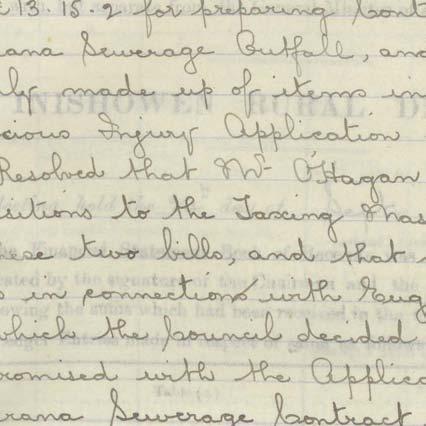 £13.15.2 for preparing Cont
rana Sewerage Outfall, and
ly made up of items in
cious Injury Application
Resolved that Mr O'Hagan
sitions to the Taxing Mas
ese two bills, and that
s in connections with Eng
which the Council decided
promised with the Applica
rana Sewerage Contract
INISHOWEN RURAL D